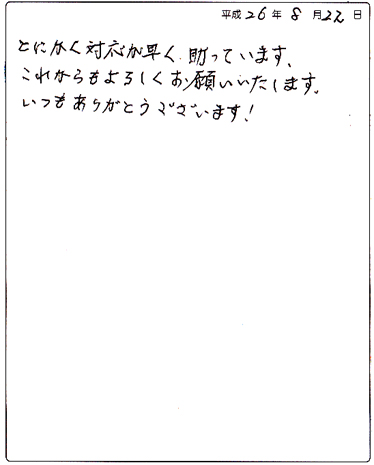 平成26年8月22日
とにかく対応が早く、助っています。
これからもよろしくお願いいたします。
いつもありがとうございます!